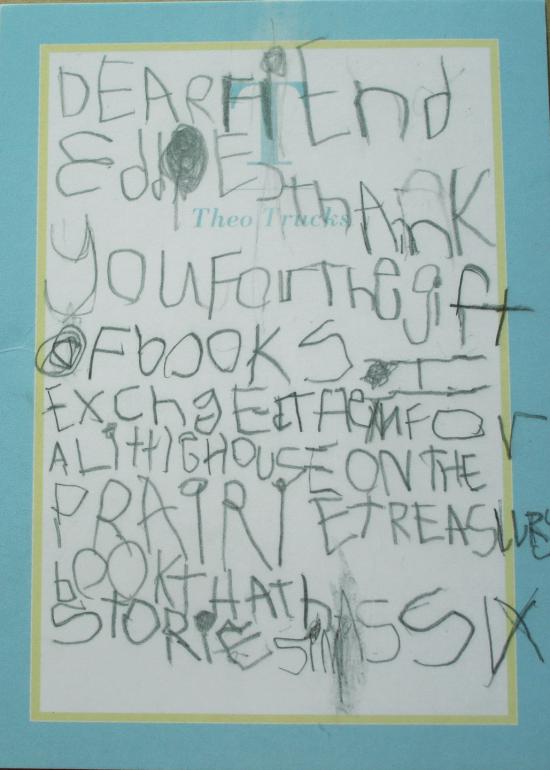 DEAR FiEnd
EddiE, thAnK
T
Theo Trucks
youForThegift
OFbooKS. I
EXchgEdtHEMFOr
ALittlGHOUSE ON THE
PRAIRIE TREASURE
bOOKtHAth AS SIX
StORiES in